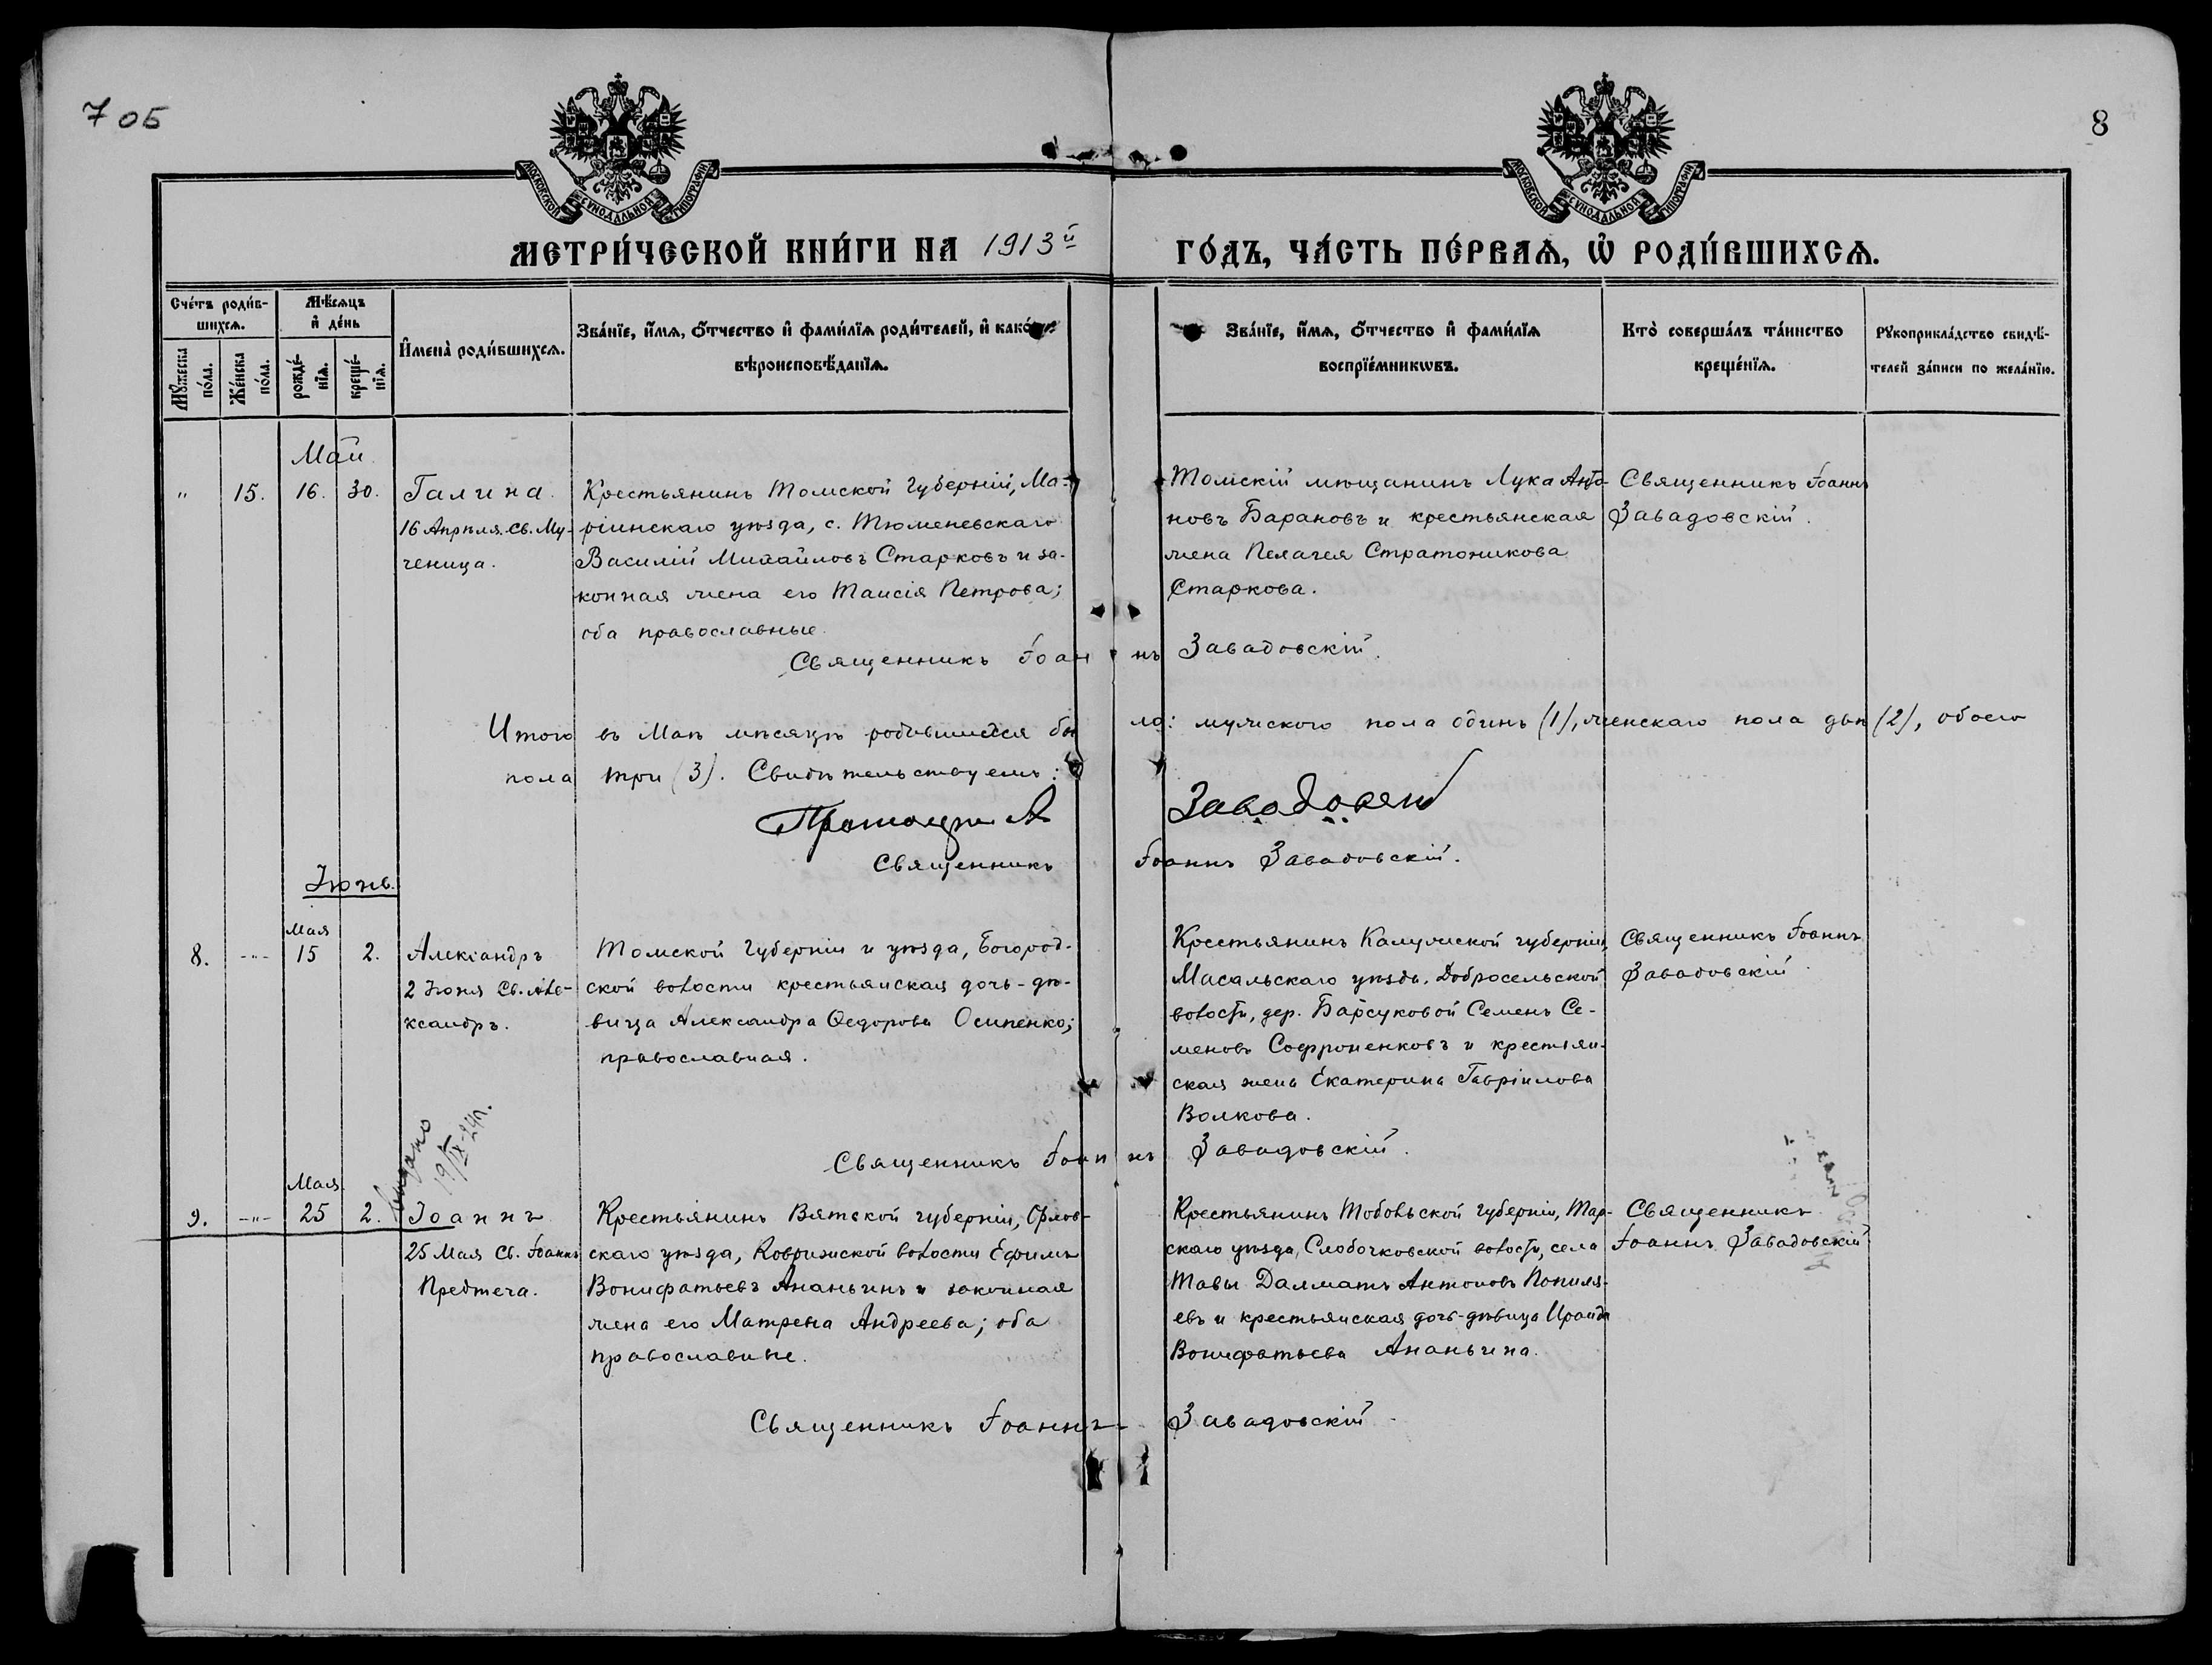 7 об
8
МОСКОВСКОЙ СѴНОДАЛЬНОЙ ТИПОГРАФІИ
МОСКОВСКОЙ СѴНОДАЛЬНОЙ ТИПОГРАФІИ
МЕТРИ́ЧЕСКОЙ КНИ́ГИ НА 1913й ГО́ДЪ, ЧА́СТЬ ПЕ́РВАѦ, Ѡ҆ РОДИ́ВШИХСѦ.
Сче́тъ роди́в-
шихсѧ.
Мѣ́сѧцъ
и҆ де́нь
Мꙋ́жеска
по́ла.
Же́нска
по́ла.
рожде́-
нїѧ.
креще́-
нїѧ.
И҆мена̀ роди́вшихсѧ.
Зва́нїе, и҆́мѧ, о҆́тчество и҆ фами́лїѧ роди́телей, и҆
вѣроисповѣ́данїѧ.
Зва́нїе, и҆́мѧ, о҆́тчество и҆ фами́лїѧ
воспрїе́мникѡвъ.
Кто̀ соверша́лъ та́инство
креще́нїѧ.
Рꙋкоприкла́дство свидѣ́-
телей за́писи по жела́нїю.
Май
" 15. 16. 30.
Галина
16 Апрѣля. Св. Му-
ченица.
Крестьянинъ Томской губерніи, Ма-
ріинскаго уѣзда, с. Тюменевскаго
Василій Михайловъ Старковъ и за-
конная жена его Таисія Петрова;
оба православные.
Томскій мѣщанинъ Лука Анто-
новъ Барановъ и крестьянская
жена Пелагея Стратоникова
Старкова.
Священникъ Іоаннъ
Завадовскій.
Священникъ Іоаннъ Завадовскій.
Итого въ Маѣ мѣсяцѣ родившихся было: мужского пола одинъ (1), женскаго пола двѣ (2), обоего
пола три (3). Свидѣтельствуемъ:
Священникъ Іоаннъ Завадовскій.
Іюнь.
Мая
8. -"- 15 2.
Александръ
2 Іюня Св. Але-
ксандръ.
Томской губерніи и уѣзда, Богород-
ской волости крестьянская дочь-дѣ-
вица Александра Ѳедорова Осипенко;
православная.
Крестьянинъ Калужской губерніи,
Масальскаго уѣзда, Добросельской
волости, дер. Барсуковой Семенъ Се-
меновъ Софроненковъ и крестьян-
ская жена Екатерина Гавріилова
Волкова.
Священникъ Іоаннъ
Завадовскій.
Священникъ Іоаннъ Завадовскій.
выдано
19/IX-24г.
Мая
9. -"- 25 2.
Іоаннъ
25 Мая Св. Іоаннъ
Предтеча.
Крестьянинъ Вятской губерніи, Орлов-
скаго уѣзда, Коврижской волости Ефимъ
Вонифатьевъ Ананьинъ и законная
жена его Матрена Андреева; оба
православные.
Крестьянинъ Тобольской губерніи, Тар-
скаго уѣзда, Слобочковской волости, села
Тавы Далматъ Антоновъ Попиля-
евъ и крестьянская дочь-дѣвица Ираида
Вонифатьева Ананьина.
Священникъ
Іоаннъ Завадовскій.
Священникъ Іоаннъ Завадовскій.